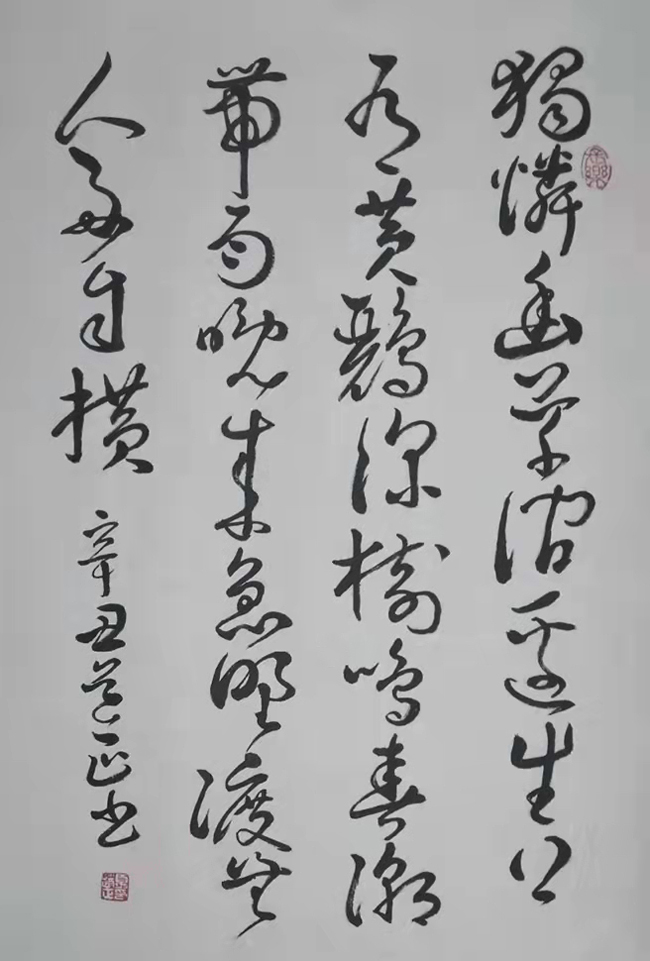 獨憐幽草澗邊生上
有黄鸝深樹鳴春潮
帶雨晚來急野渡無
人舟自横 辛丑道正书